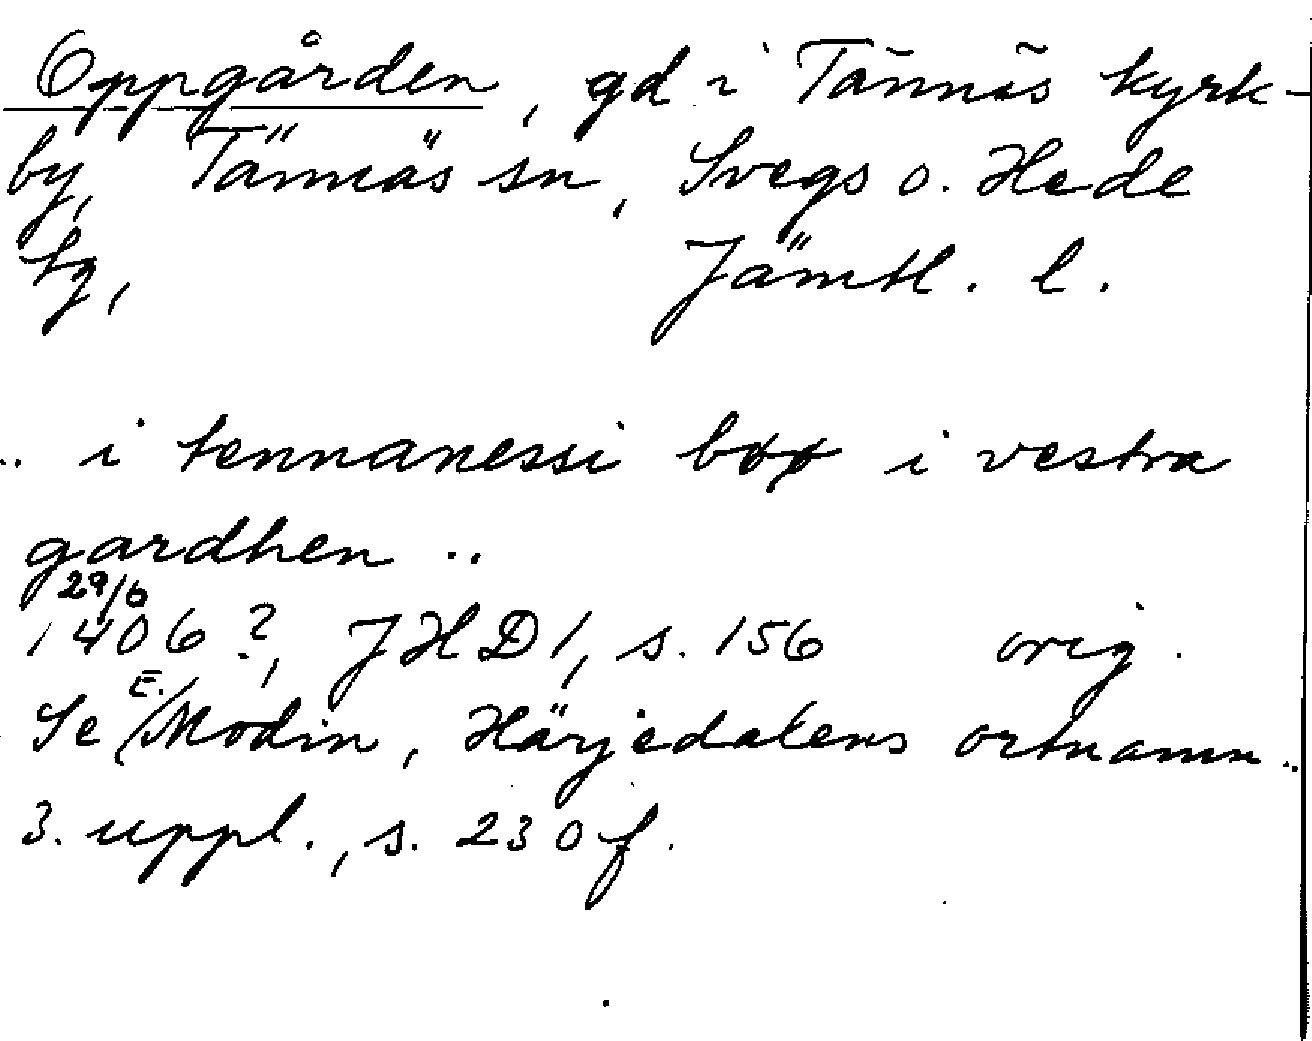 Oppgården, gd i Tännäs kyrk-
by, Tännäs sn, Svegs o. Hede
tg, Jämtl. l.
.. i tennanessi bøø i vestra
gardhen ..
29/6
1406?, JHD 1, s. 156 orig.
Se E. Modin, Härjedalens ortnamn ..
3. uppl., s. 230 f.